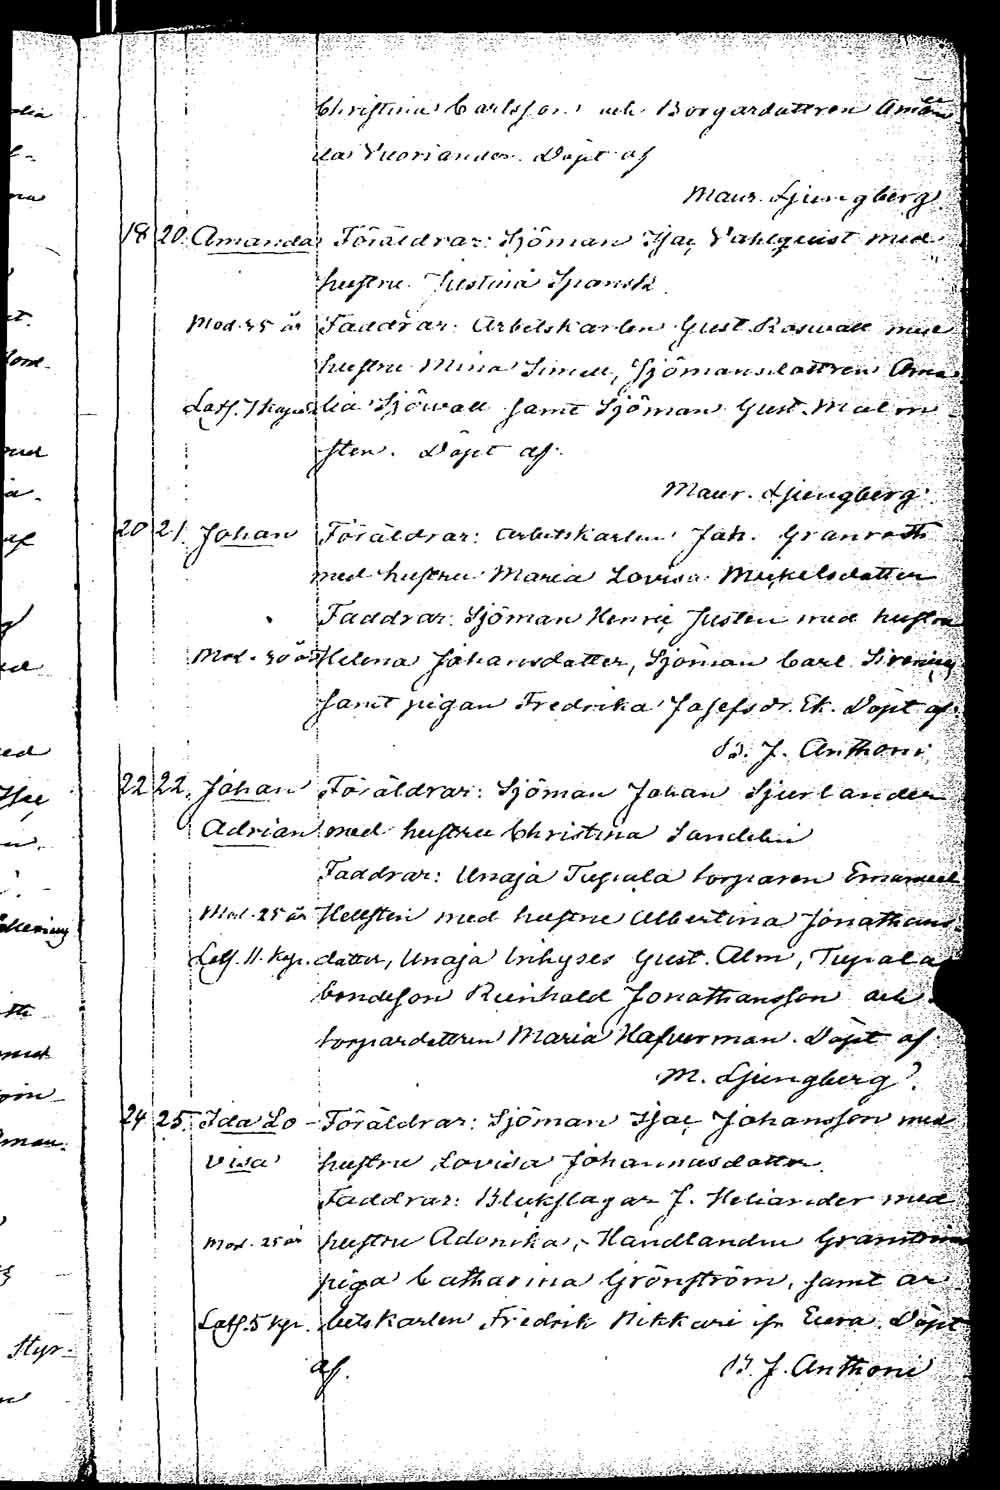 Christina Carlsson och Borgardattren Aman
da Vuoriander. Döpt af
Maur. Ljungberg.
18 20. Amanda Föräldrar: Sjöman Isac Vahlqvist med
hustru Justina Spansk
Mod. 35 år Faddrar: Arbetskarlen Gust. Roswall med
hustru Mina Simell, Sjömansdattren Ama
Latf. 7 kap. lia Sjöwall samt Sjöman Gust. Malm
sten. Döpt af.
Maur. Ljungberg.
20 21. Johan Föräldrar: Arbetskarlen Joh. Granroth
med hustru Maria Lovisa Mickelsdatter
Faddrar: Sjöman Henric Justen med hustru
Mod. 30 år Helena Johansdatter, Sjöman Carl
samt pigan Fredrika Josefsdr. Ek. Döpt af.
B. J. Anthoni
22 22. Johan Föräldrar: Sjöman Johan Sjerlander
Adrian med hustru Christina Sandelin
Faddrar: Unaja Tupala torparen Emanuel
Mod. 25 år Hellsten med hustru Albertina Jonathans
Latf. 11. kp. datter, Unaja Inhyses Gust. Alm, Tupala
bondeson Reinhold Jonathansson och
torpardattren Maria Hafverman. Döpt af
M. Ljungberg.
24 25. Ida Lo- Föräldrar: Sjöman Isac Johansson med
visa hustru Lovisa Johannesdatter
Faddrar: Bleckslagar J. Heliander med
Mod. 25 år hustru Adonika, Handlanden
piga Catharina Grönström, samt ar
Latf. 5 kp. betskarlen Fredrik Nikkari ifr Eura. Döpt
af. B. J. Anthoni
Styr-